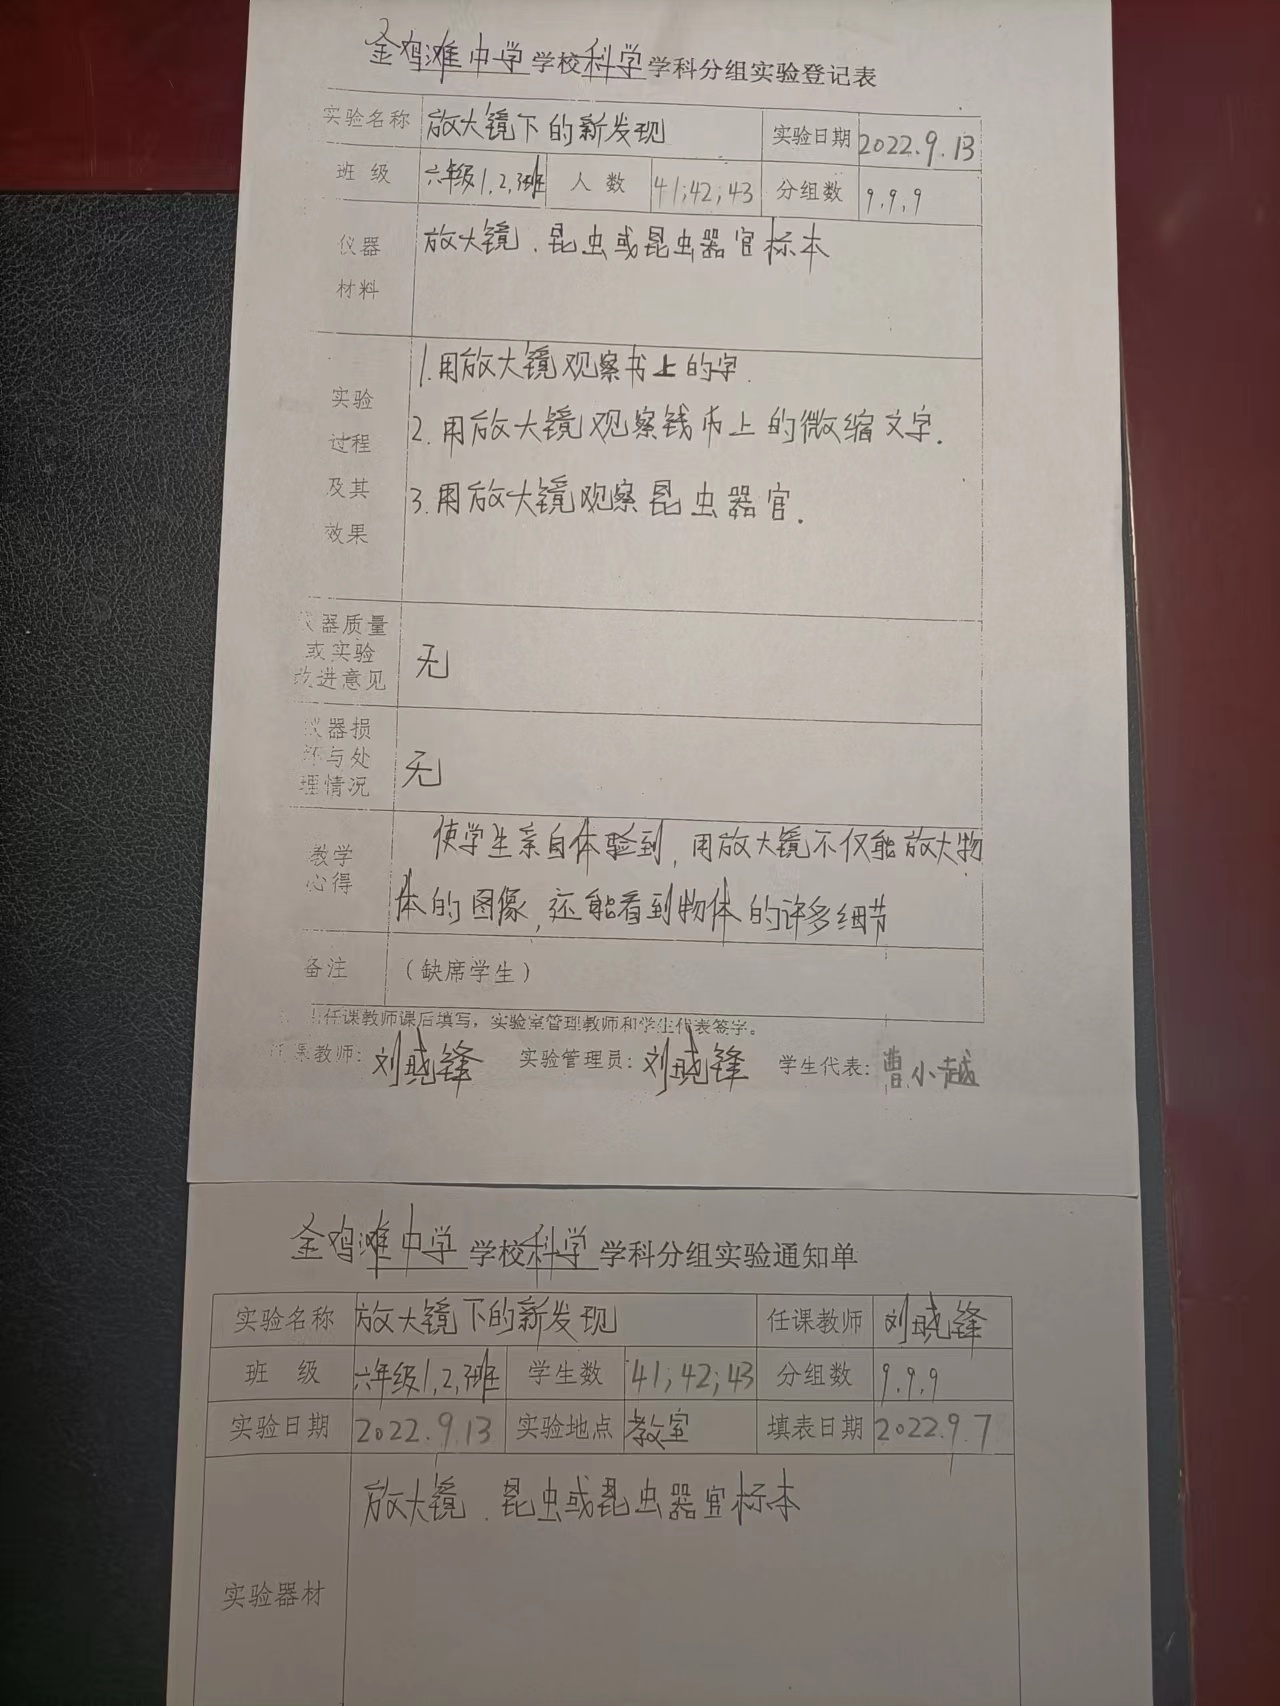 金鸡滩中学学校科学学科分组实验登记表
实验名称 放大镜下的新发现 实验日期 2022.9.13
班 级 六年级1,2,3班 人 数 41;42;43 分组数 9,9,9
仪器
材料
放大镜、昆虫或昆虫器官标本
实验
过程
及其
效果
1.用放大镜观察书上的字.
2.用放大镜观察钱币上的微缩文字.
3.用放大镜观察昆虫器官.
仪器质量
或实验
改进意见
无
仪器损
坏与处
理情况
无
教学
心得
使学生亲自体验到,用放大镜不仅能放大物
体的图像,还能看到物体的许多细节
备注 (缺席学生)
任课教师课后填写,实验室管理教师和学生代表签字。
任课教师: 刘晓锋 实验管理员: 刘晓锋 学生代表: 曹小越
金鸡滩中学学校科学学科分组实验通知单
实验名称 放大镜下的新发现 任课教师 刘晓锋
班 级 六年级1,2,3班 学生数 41;42;43 分组数 9,9,9
实验日期 2022.9.13 实验地点 教室 填表日期 2022.9.7
放大镜、昆虫或昆虫器官标本
实验器材